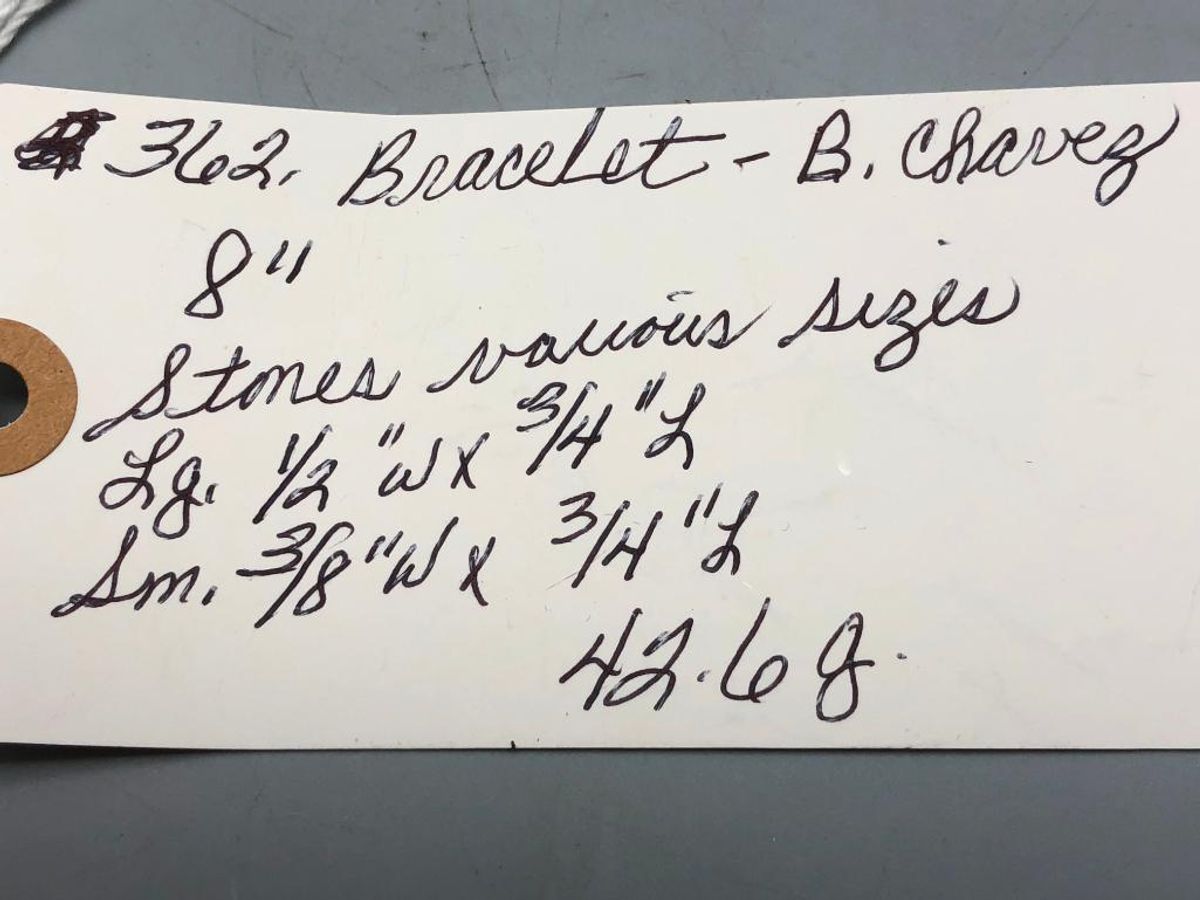 # 362. Bracelet - B. Chavez
8"
Stones various sizes
Lg. 1/2 "W x 3/4 "L
Sm. 3/8 "W x 3/4 "L
42.6 g.